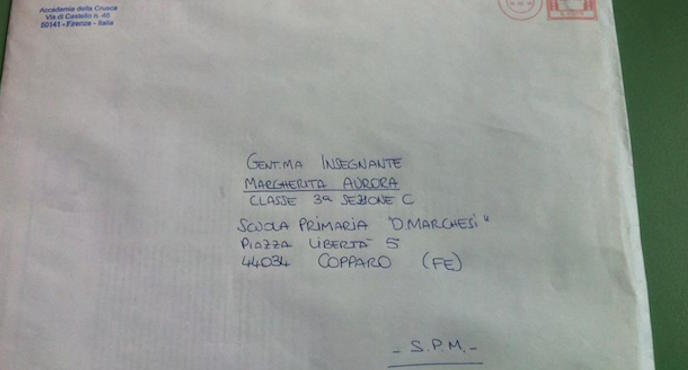 Accademia della Crusca
Via di Castello n. 46
50141 - Firenze - Italia
GENT.MA INSEGNANTE
MARGHERITA AURORA
CLASSE 3a SEZIONE C
SCUOLA PRIMARIA "D. MARCHESI"
PIAZZA LIBERTÀ 5
44034 COPPARO (FE)
- S.P.M. -